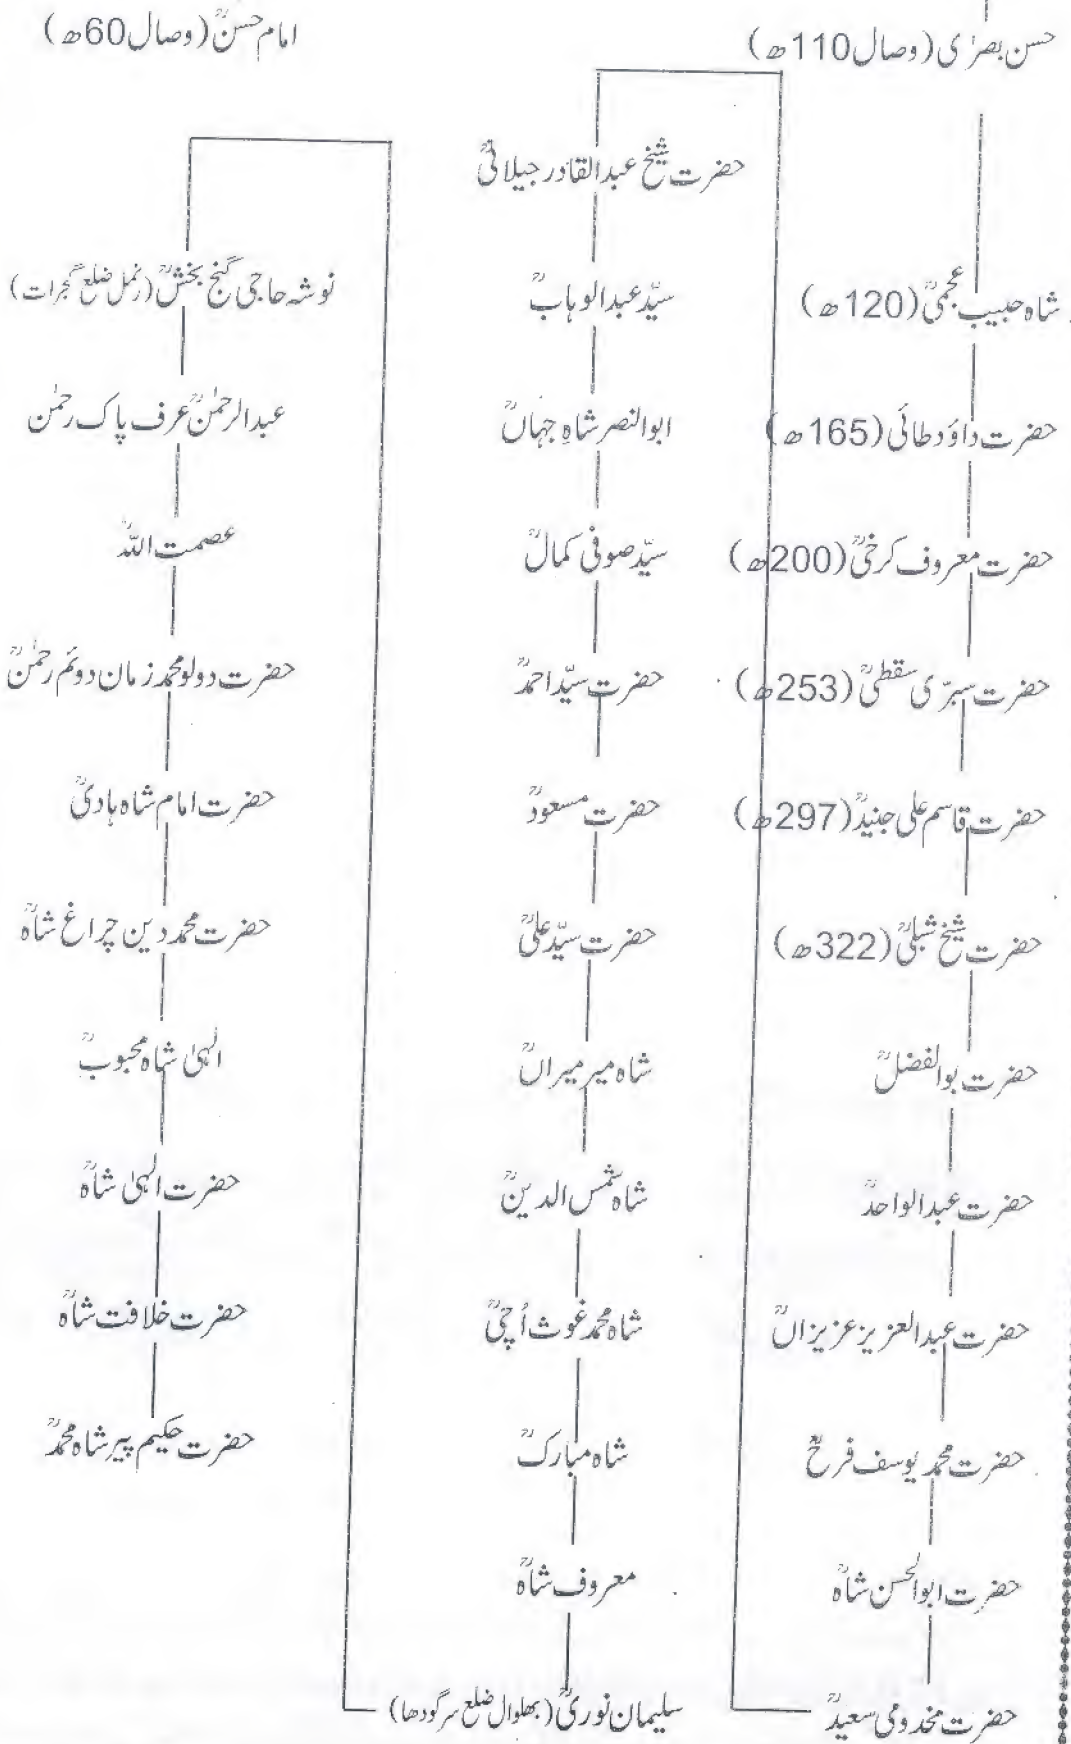 حسن بصرٰی (وصال 110ھ)
امام حسنؓ (وصال 60ھ)
شاہ حبیب عجمیؒ (120ھ)
حضرت داؤد طائی (165ھ)
حضرت معروف کرخیؒ (200ھ)
حضرت سبرّی سقطیؒ (253ھ)
حضرت قاسم علی جنیدؒ (297ھ)
حضرت شیخ شبلیؒ (322ھ)
حضرت بوالفضلؒ
حضرت عبدالواحدؒ
حضرت عبدالعزیز عزیزاںؒ
حضرت محمد یوسف فرحؒ
حضرت ابوالحسن شاہؒ
حضرت مخدومی سعیدؒ
حضرت شیخ عبدالقادر جیلانیؒ
سیّد عبدالوہابؒ
ابوالنصر شاہِ جہاںؒ
سیّد صوفی کمالؒ
حضرت سیّد احمدؒ
حضرت مسعودؒ
حضرت سیّد علیؒ
شاہ میر میراںؒ
شاہ شمس الدینؒ
شاہ محمد غوث اُچیؒ
شاہ مبارکؒ
معروف شاہؒ
سلیمان نوریؒ (بھلوال ضلع سرگودھا)
نوشہ حاجی گنج بخشؒ (رنمل ضلع گجرات)
عبدالرحمٰنؒ عرف پاک رحمٰن
عصمت اللہؒ
حضرت دولو محمد زمان دوئم رحمٰنؒ
حضرت امام شاہ ہادیؒ
حضرت محمد دین چراغ شاہؒ
الہیٰ شاہ محبوبؒ
حضرت الہیٰ شاہؒ
حضرت خلافت شاہؒ
حضرت حکیم پیر شاہ محمدؒ